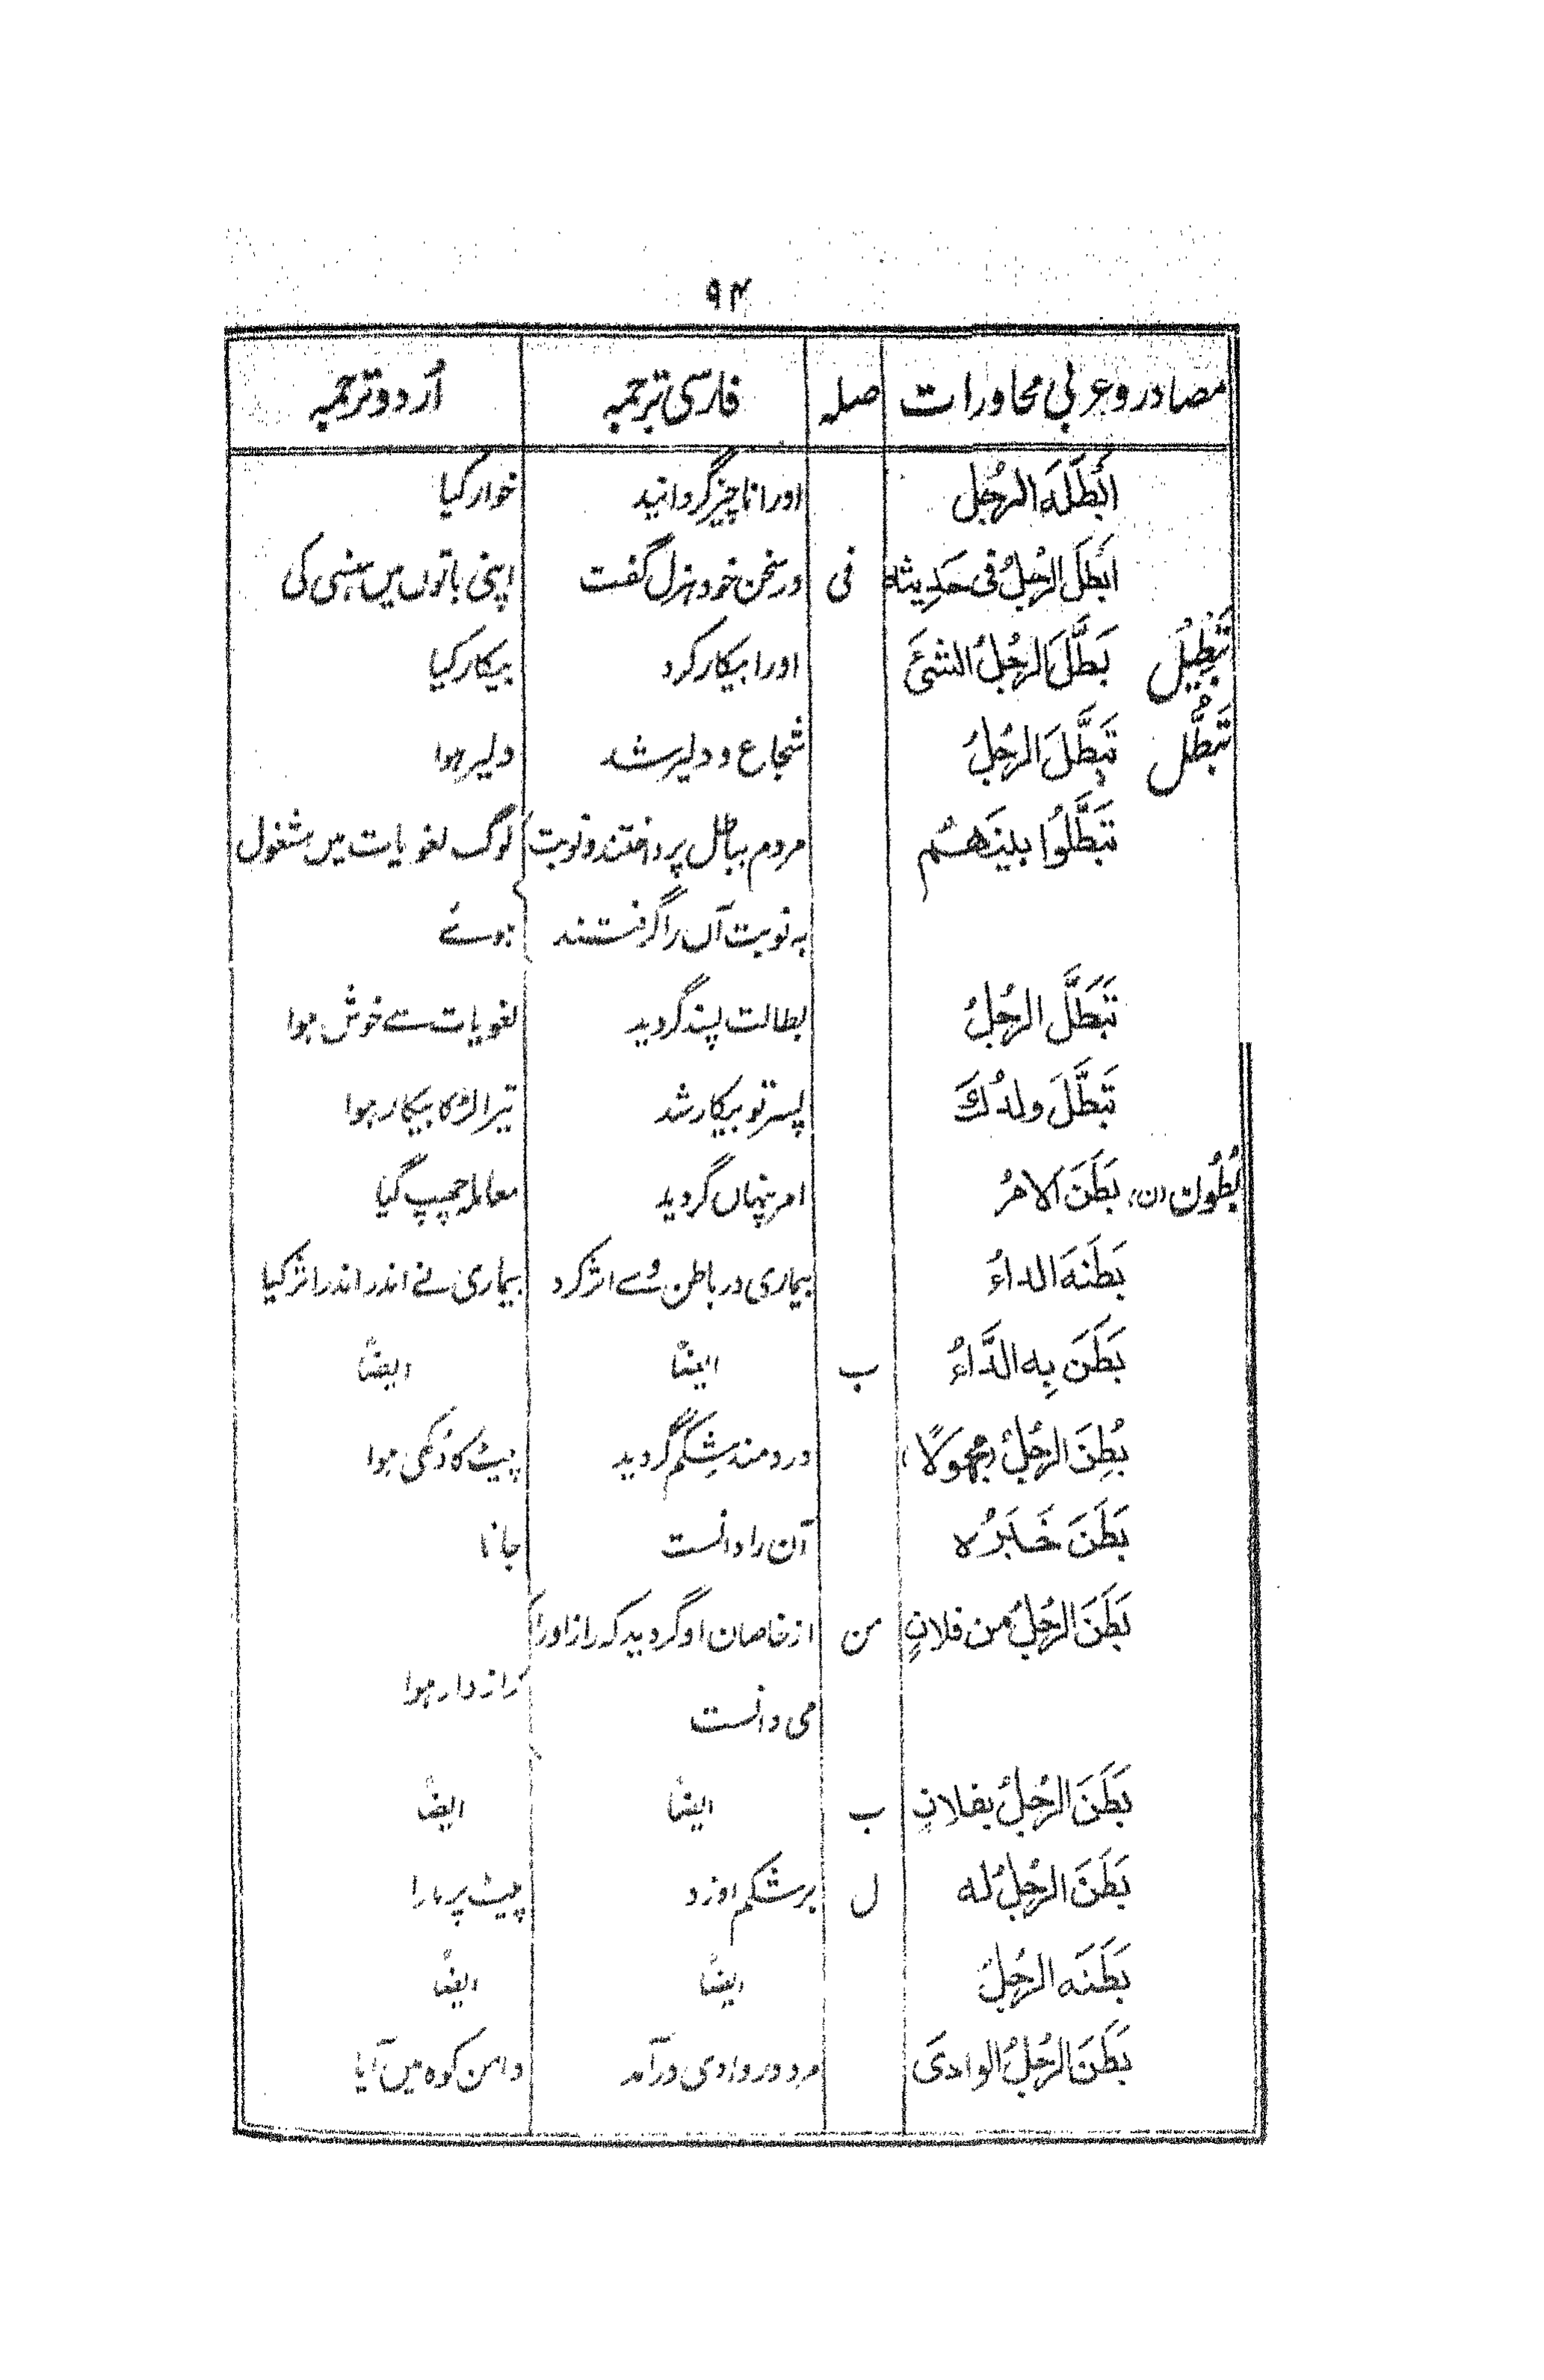 ۹۴
مصادر و عربی محاورات صلہ فارسی ترجمہ اُردو ترجمہ
اَبْطَلَهَ الرجُل اورا ناچیز گردانید خوار کیا
اَبطَلَ الرجُلُ فی حَدِیثه فی در سخن خود ہزل گفت اپنی باتوں میں ہنسی کی
تَبْطِیْل بَطَّلَ الرجُلُ الشیَٔ اورا بیکار کرد بیکار کیا
تَبَطُّل تَبَطَّلَ الرجُلُ شجاع و دلیر شد دلیر ہوا
تَبَطَّلُوا بینَهُم مردم بباطل پرداختند و نوبت لوگ لغویات میں مشغول
بہ نوبت آں را گرفتند ہوئے
تَبَطَّلَ الرجُلُ بطالت پسند گردید لغویات سے خوش ہوا
تَبَطَّلَ ولدُكَ پسر تو بیکار شد تیرا لڑکا بیکار ہوا
بُطُون (ن) بَطَنَ الامرُ امر پنہاں گردید معاملہ چھپ گیا
بَطَنَهَ الداءُ بیماری در باطن وے اثر کرد بیماری نے اندر اندر اثر کیا
بَطَنَ بِه الدَّاءُ ب ایضاً ایضاً
بُطِنَ الرجُلُ (مجهولًا) درد مند شکم گردید پیٹ کا دُکھی ہوا
بَطَنَ خَبَرُه آن را دانست جانا
بَطَنَ الرجُلُ من فلانٍ من از خاصان او گردید کہ راز اورا
رازدار ہوا
می دانست
بَطَنَ الرجُلُ بفلانٍ ب ایضاً ایضاً
بَطَنَ الرجُلُ له ل بر شکم او زد پیٹ پر مارا
بَطَنَه الرجُلُ ایضاً ایضاً
بَطَنَ الرجُلُ الوادیَ مرد در وادی درآمد دامن کوہ میں آیا